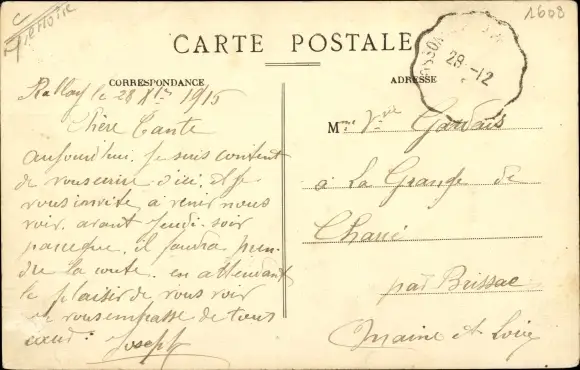 1608
CARTE POSTALE
28-12
CORRESPONDANCE
ADRESSE
le 28 Xbre 1915
Chère Tante
Aujourd'hui je suis content
de vous écrire d'ici, et je
vous invite à venir nous
voir avant Jeudi soir
parceque il faudra pren-
dre la route en attendant
le plaisir de vous voir
je vous embrasse de tout
cœur: Joseph
Mme Vve Gardais
à La Grange de
Charcé
par Brissac
Maine et Loire